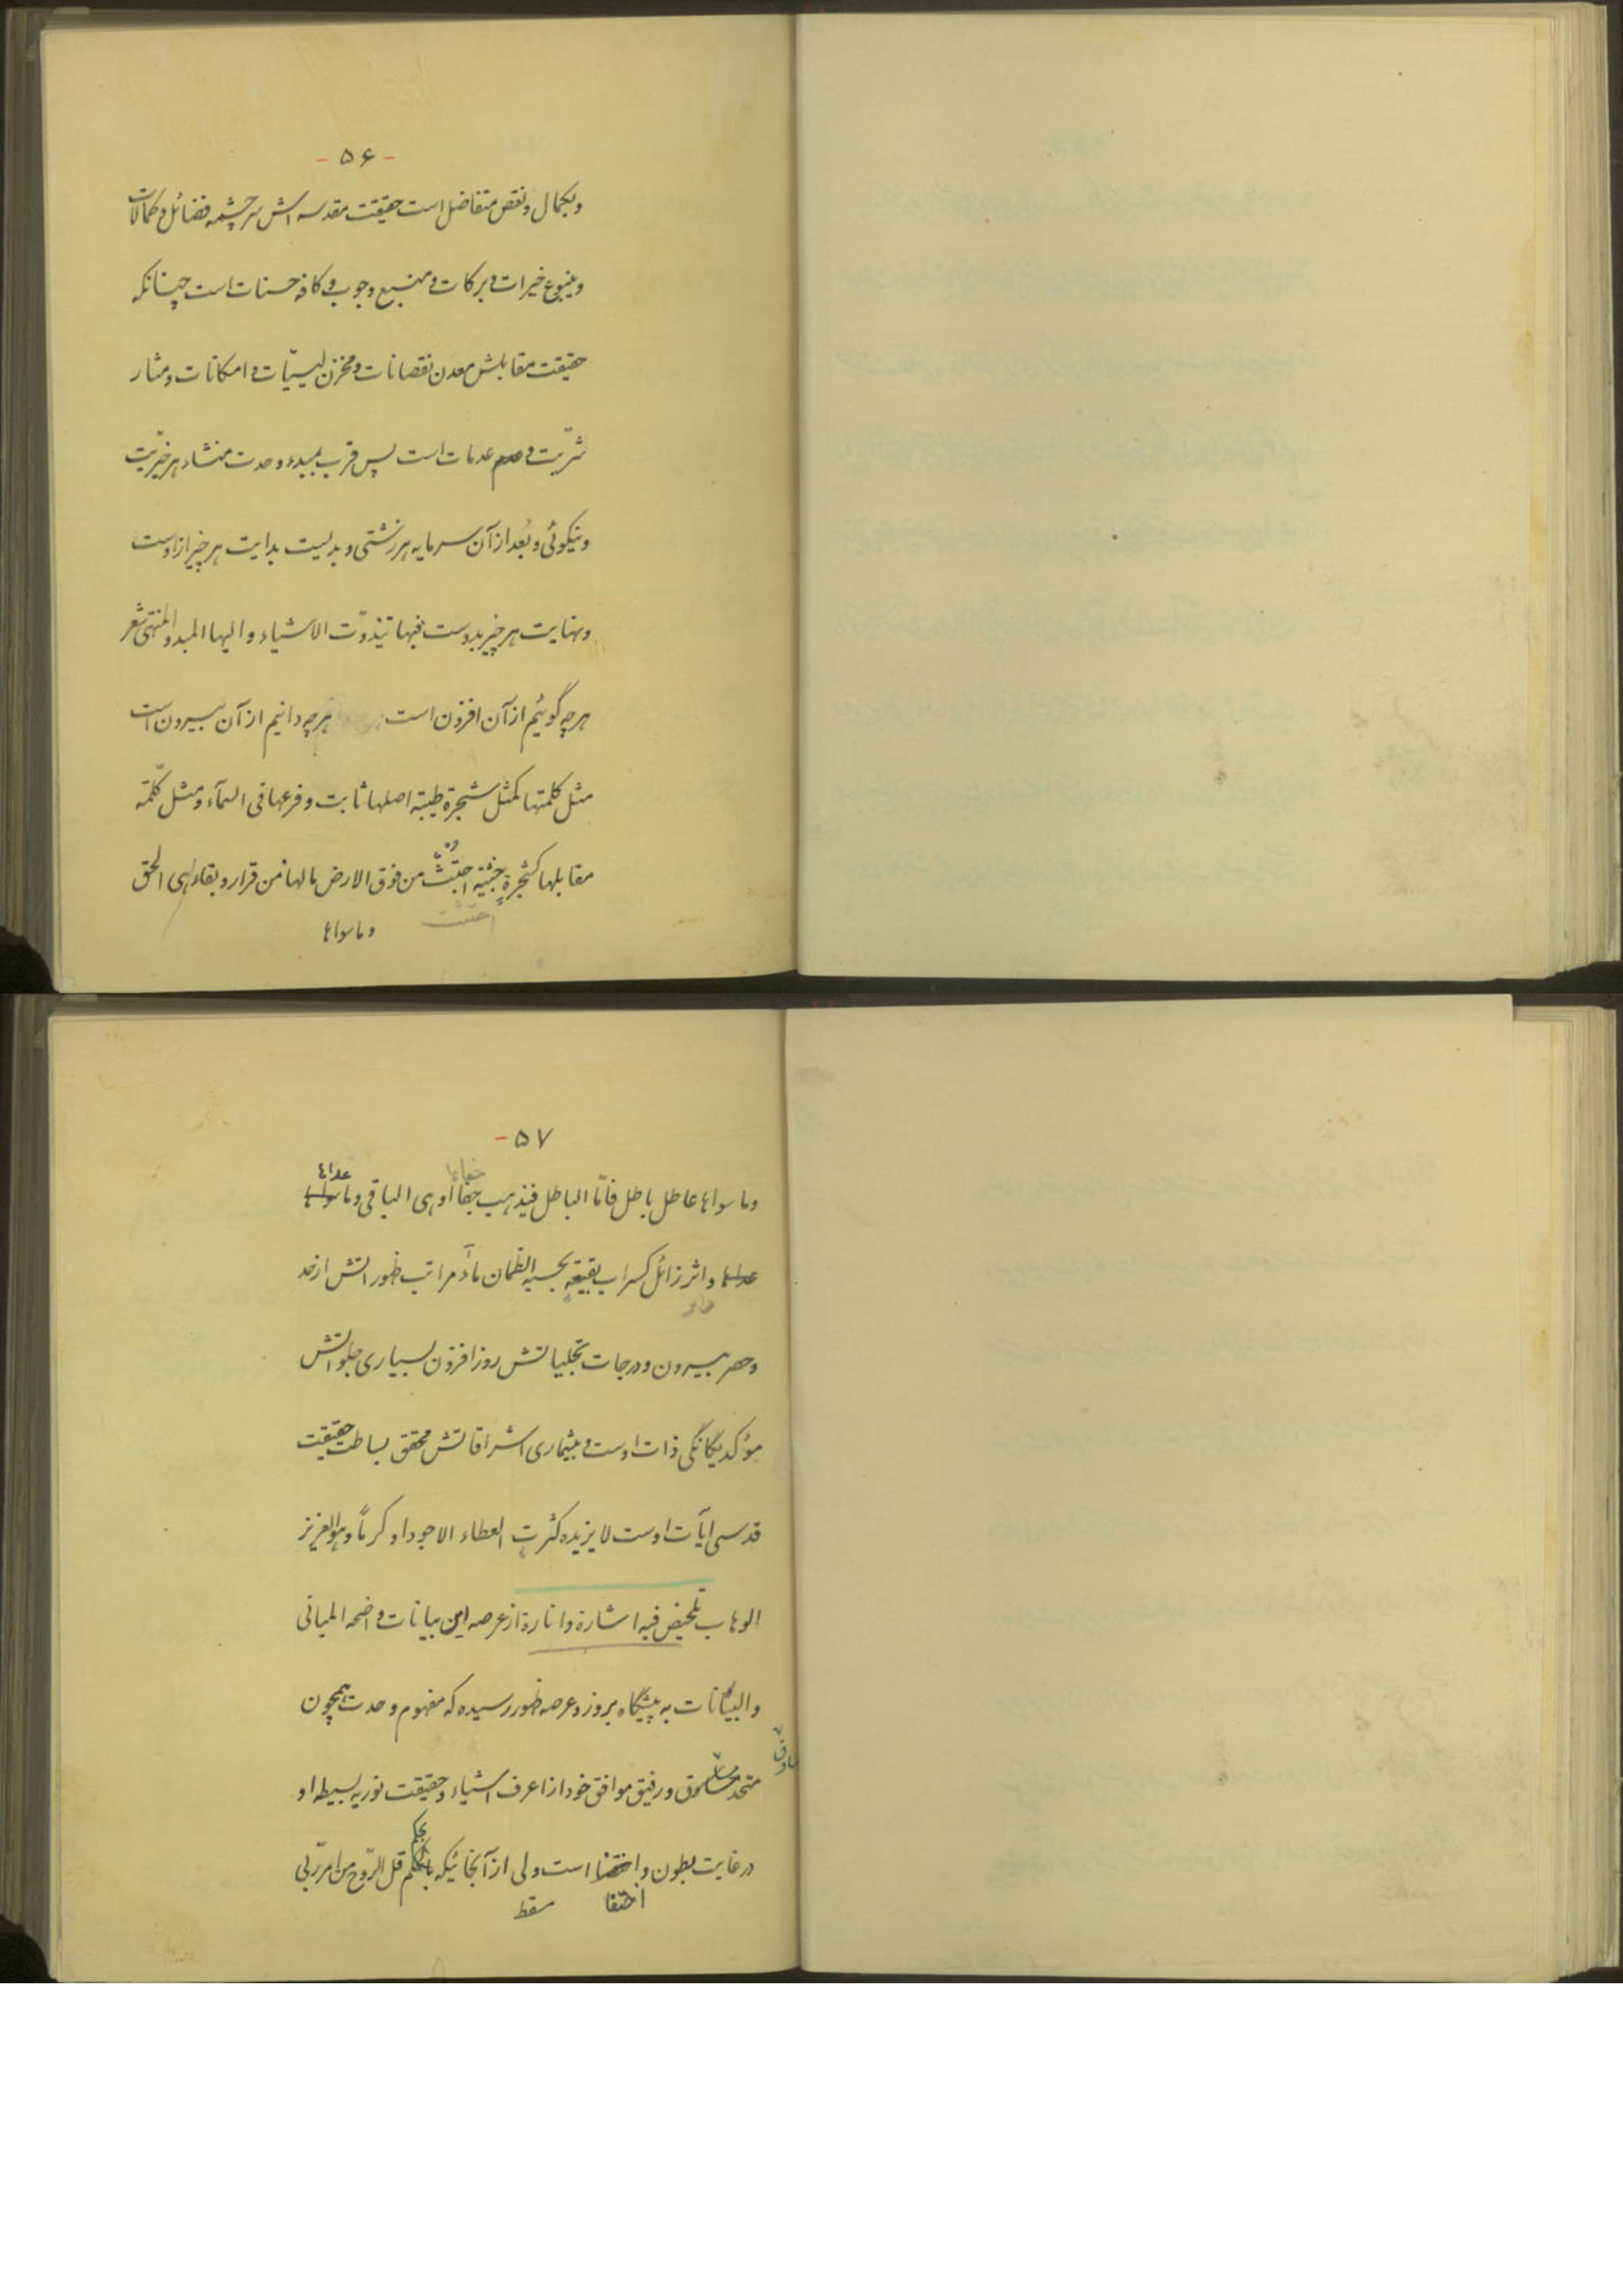 - ۵۶ -
وبکمال ونقص متفاضل است حقیقت مقدسه اش سرچشمه فضائل و کمالات
وینبوع خیرات و برکات و منبع وجوب و کافه حسنات است چنانکه
حقیقت مقابلش معدن نقصانات و مخزن لیسیّات و امکانات و مثار
شرّیت و عدمات است پس قرب بمبدء وحدت منشاء هر خیریّت
ونیکوئی و بُعد از آن سرمایه هر زشتی و بدلیست بدایت هر چیز ازاوست
ونهایت هر چیز بدوست فبها تذوّت الاشیاء والیها المبدء والمنتهی شعر
هر چه گوئیم از آن افزون است هر چه دانیم از آن بیرون است
مثل کلمتها کمثل شجرة طیبة اصلها ثابت و فرعها فی السمآء و مثل کلمة
مقابلها کشجرةٍ خبیثةٍ اجتثّت من فوق الارض مالها من قرار و بقاء هی الحق
اجتثت
وما سواها
۵۷ -
خفاءا
عداها
وما سواها عاطل باطل فامّا الباطل فیذهب جفاءً او هی الباقی وما سواها
عداها واثر زائل کسراب بقیعةٍ یحسبه الظمان مآءً مراتب ظهوراتش از حد
وحصر بیرون و درجات تجلیاتش روز افزون بسیاری جلواتش
مؤکد یگانگی ذات اوست و بیشماری اشراقاتش محقق بساطت حقیقت
قدسی آیات اوست لا یزیده کثرت العطاء الا جودا و کرماً وهو العزیز
الوهاب تلخیص فیه اشارة وانارة از عرصه این بیانات واضحه المبانی
والبیانات به پیشگاه بروز و عرصه ظهور رسیده که مفهوم وحدت همچون
متحد و رفیق موافق خود از اعرف اشیاء و حقیقت نوریه بسیطه او
در غایت بطون و اختفا است ولی از آنجائیکه بحکم قل الرّوح من امر ربّی
اختفا
سقط